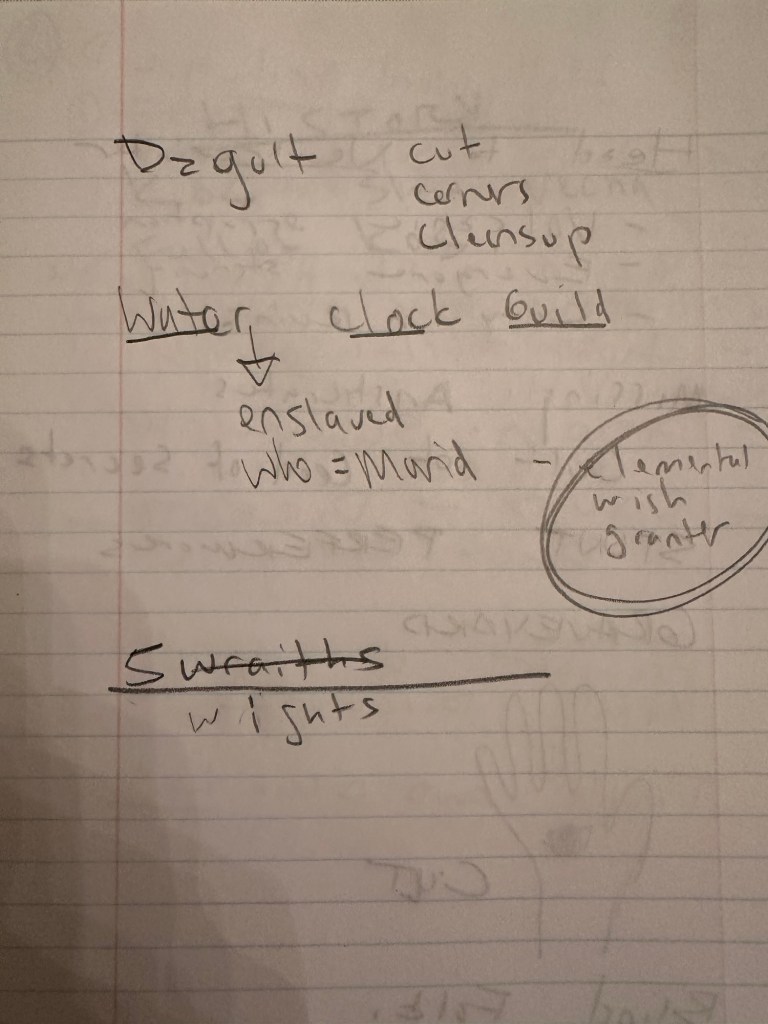 Dzgult cut
corners
cleansup
Water clock Guild
enslaved
who = Marid - elemental
wish
granter
5 wraiths
wights